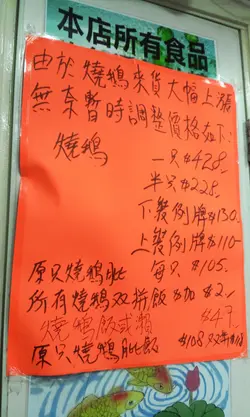 本店所有食品
由於燒鵝來貨大幅上漲
無奈暫時調整價格如下:
燒鵝
一只$428.
半只$228.
下裝例牌$130.
上裝例牌$110-
原只燒鵝髀 每只$105.
所有燒鵝双拼飯加$2.
燒鵝飯或瀨 $47
原只燒鵝髀飯 $108